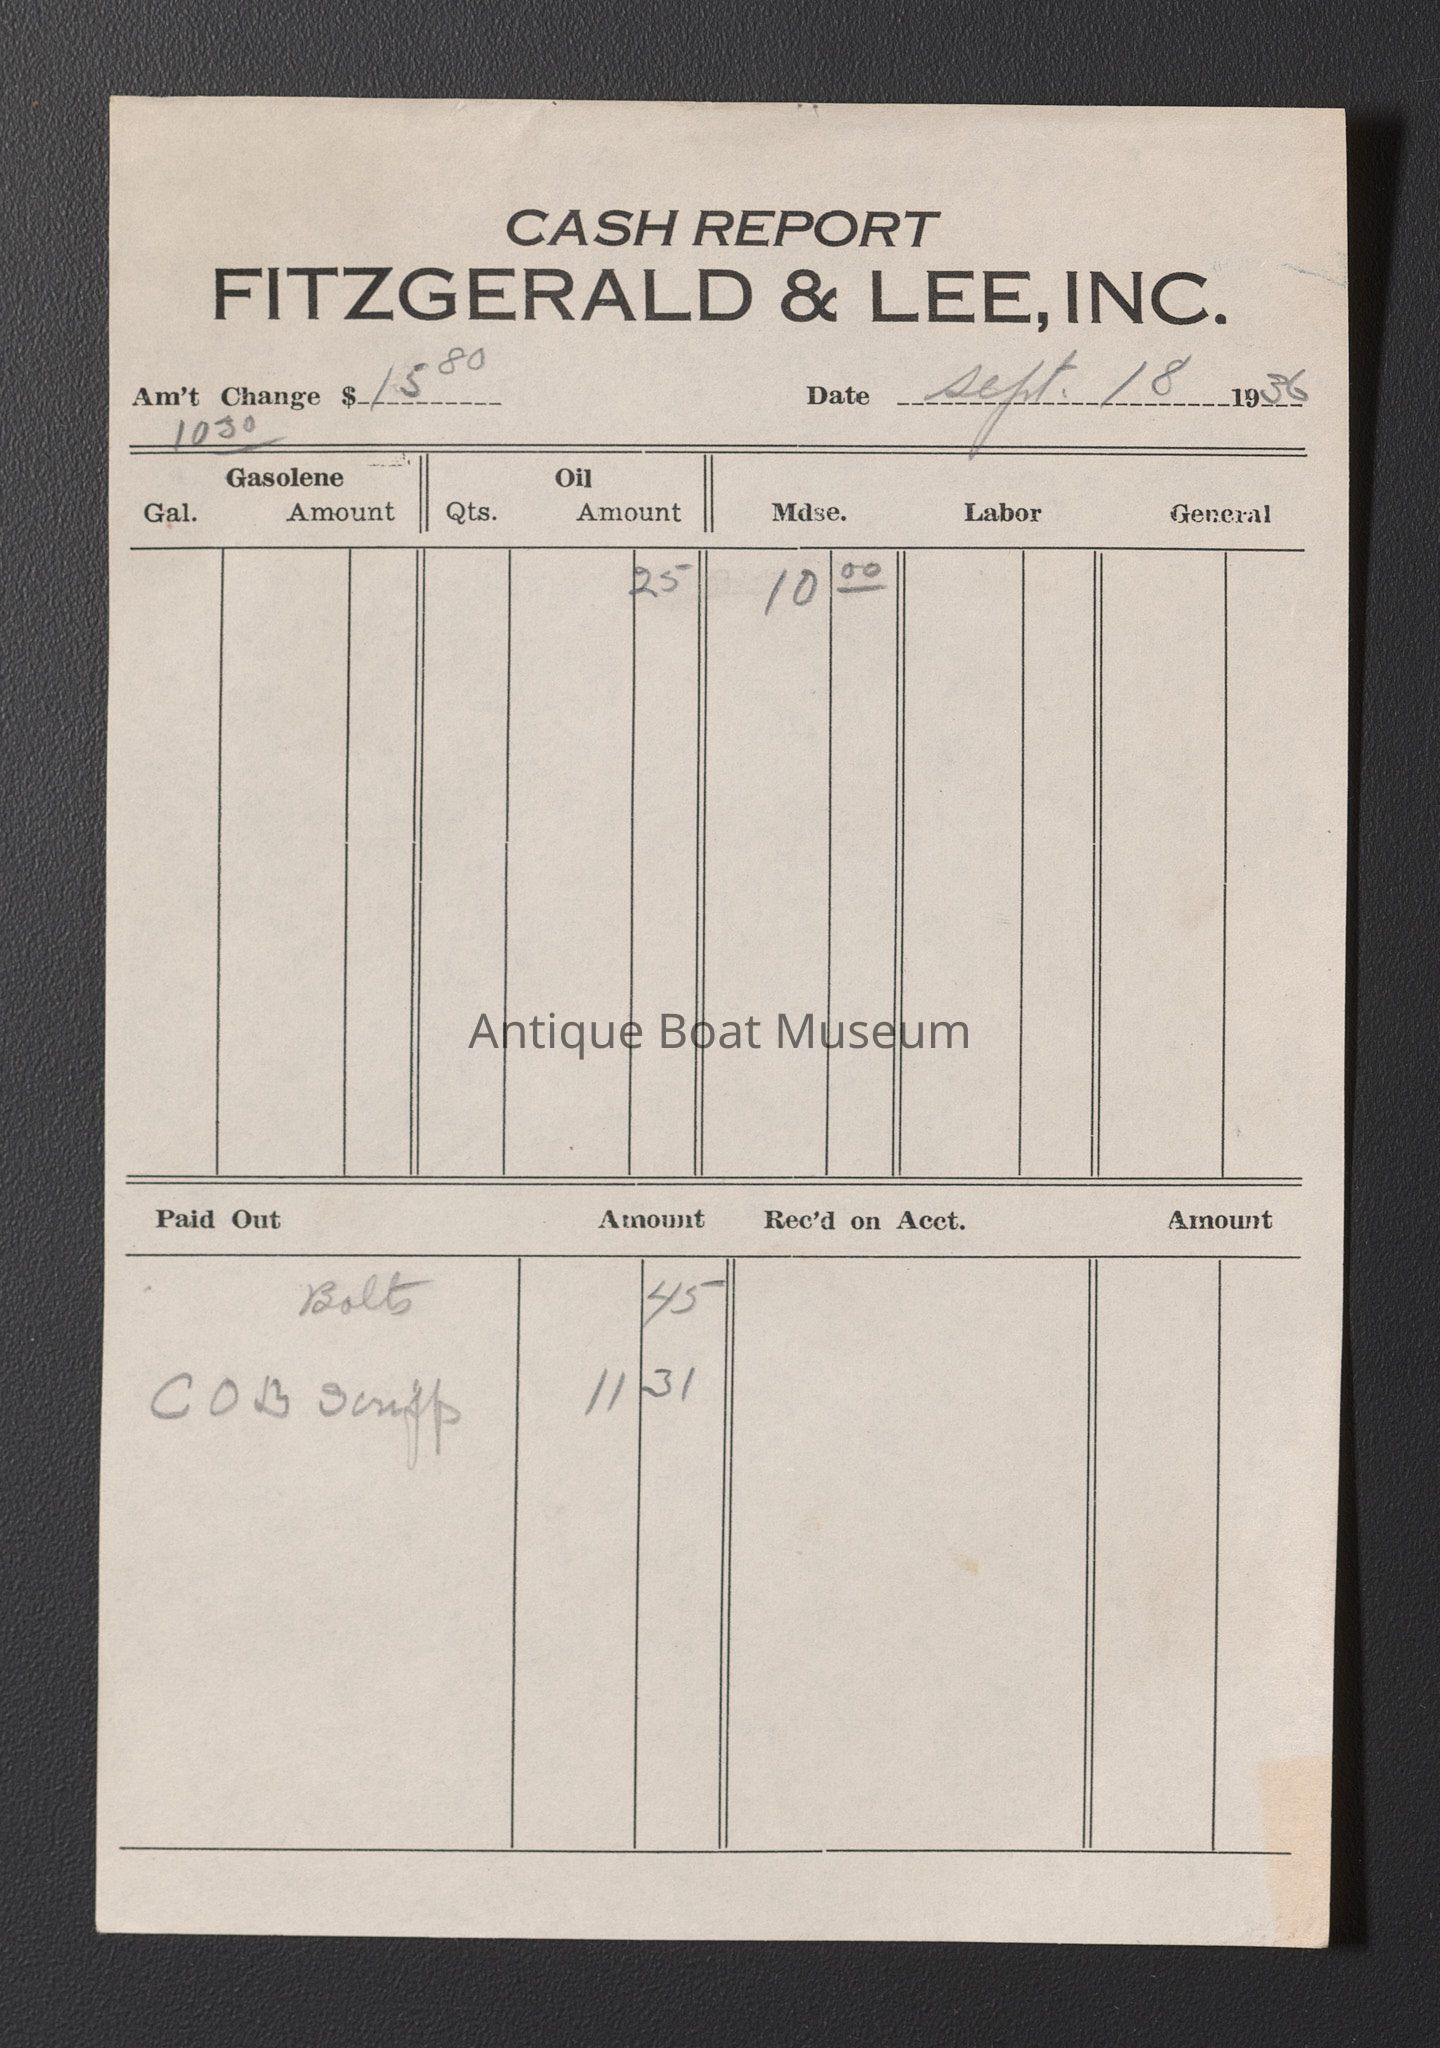 CASH REPORT
FITZGERALD & LEE, INC.
Am't Change $ 15 80 Date Sept. 18 1936
10 30
Gasolene Oil
Gal. Amount Qts. Amount Mdse. Labor General
25 10 00
Antique Boat Museum
Paid Out Amount Rec'd on Acct. Amount
Bolts 45
C O D 11 31